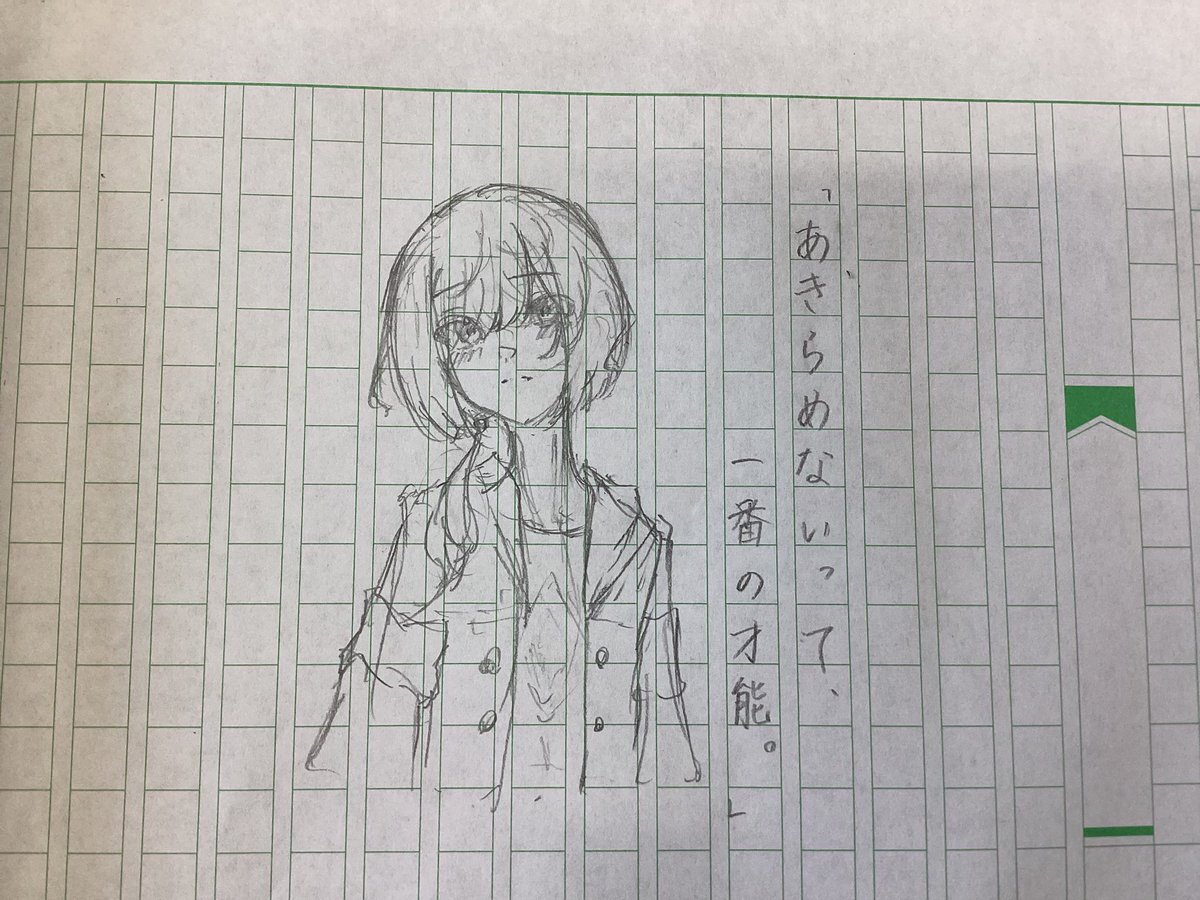 「あきらめないって、
一番の才能。」